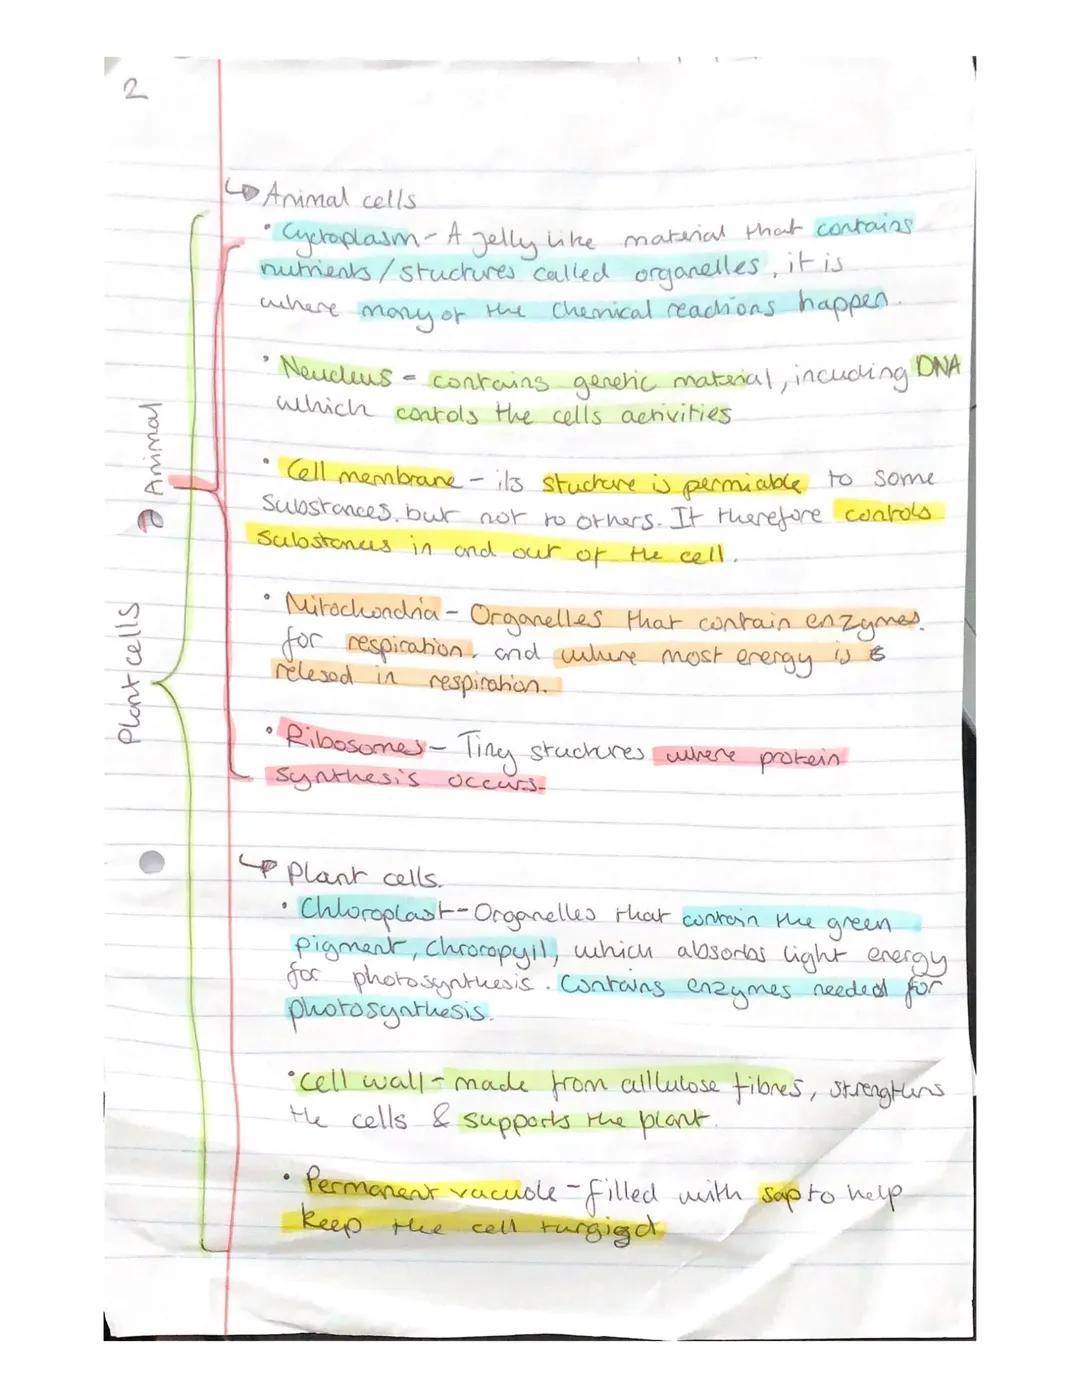 2
Animal cells
• Cyctoplasm - A jelly like material that contains
nutrients / stuctures called organelles, it is
where many of the chemical reactions happen.
• Neucleus - contains genetic material, incuding DNA
which contols the cells activities
• Cell membrane - its stucture is permiable to some
substances, but not to others. It therefore contols
substances in and out of the cell.
Animal
• Mitochondria - Organelles that contain enzymes
for respiration, and where most energy is
relesed in respiration.
Plant cells
• Ribosomes - Tiny stuctures where protein
synthesis occurs.
Plant cells.
• Chloroplast - Organelles that contain the green
pigment, chroropyll, which absorbs light energy
for photosynthesis. Contains enzymes needed for
photosynthesis.
• Cell wall - made from celllulose fibres, strengthens
the cells & supports the plant.
• Permanent vacuole - filled with sap to help
keep the cell turgigd